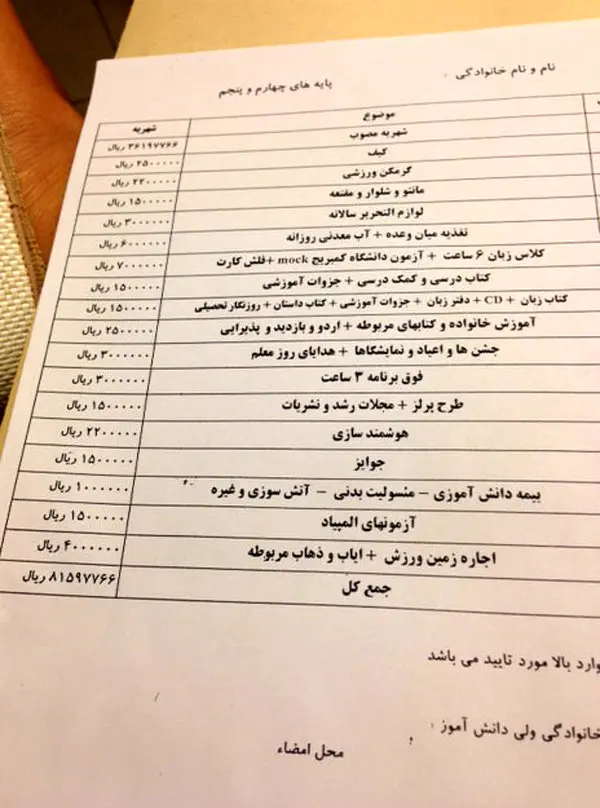 نام و نام خانوادگی :
پایه های چهارم و پنجم
موضوع شهریه
شهریه مصوب ۳۶۱۹۷۷۶۶ ریال
کیف ۲۵۰۰۰۰۰ ریال
گرمکن ورزشی ۲۲۰۰۰۰۰ ریال
مانتو و شلوار و مقنعه ۱۵۰۰۰۰۰ ریال
لوازم التحریر سالانه ۳۰۰۰۰۰۰ ریال
تغذیه میان وعده + آب معدنی روزانه ۶۰۰۰۰۰۰ ریال
کلاس زبان ۶ ساعت + آزمون دانشگاه کمبریج mock +فلش کارت ۷۰۰۰۰۰۰ ریال
کتاب درسی و کمک درسی + جزوات آموزشی ۱۵۰۰۰۰۰ ریال
کتاب زبان + CD + دفتر زبان + جزوات آموزشی + کتاب داستان + روزنگار تحصیلی ۱۵۰۰۰۰۰ ریال
آموزش خانواده و کتابهای مربوطه + اردو و بازدید و پذیرایی ۲۵۰۰۰۰۰ ریال
جشن ها و اعیاد و نمایشگاها + هدایای روز معلم ۳۰۰۰۰۰۰ ریال
فوق برنامه ۳ ساعت ۳۰۰۰۰۰۰ ریال
طرح پرلز + مجلات رشد و نشریات ۱۵۰۰۰۰۰ ریال
هوشمند سازی ۲۲۰۰۰۰۰ ریال
جوایز ۱۵۰۰۰۰۰ ریال
بیمه دانش آموزی – مسولیت بدنی – آتش سوزی و غیره ۱۰۰۰۰۰۰ ریال
آزمونهای المپیاد ۱۵۰۰۰۰۰ ریال
اجاره زمین ورزش + ایاب و ذهاب مربوطه ۴۰۰۰۰۰۰ ریال
جمع کل ۸۱۵۹۷۷۶۶ ریال
وارد بالا مورد تایید می باشد
خانوادگی ولی دانش آموز :
محل امضاء